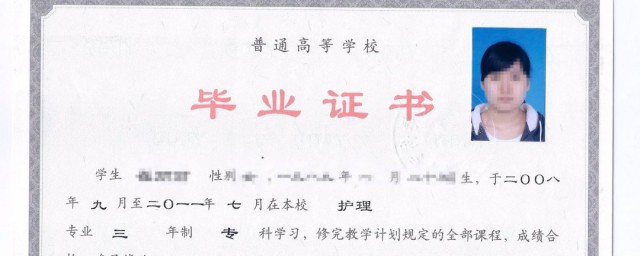 普通高等学校
毕业证书
学生 性别 , 一九八九年 月 生，于二〇〇八
年九月至二〇一一年七月在本校 护理
专业 三 年制 专 科学习，修完教学计划规定的全部课程，成绩合